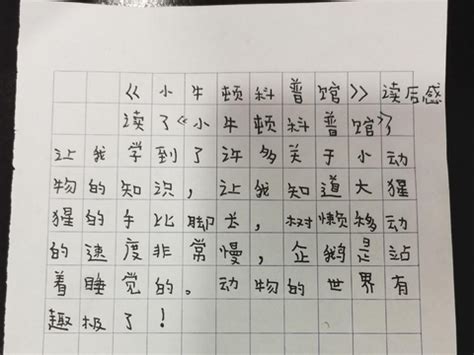 《小牛顿科普馆》读后感
读了《小牛顿科普馆》
让我学到了许多关于小动
物的知识,让我知道大猩
猩的手比脚长,树懒移动
的速度非常慢,企鹅是站
着睡觉的。动物的世界有
趣极了!